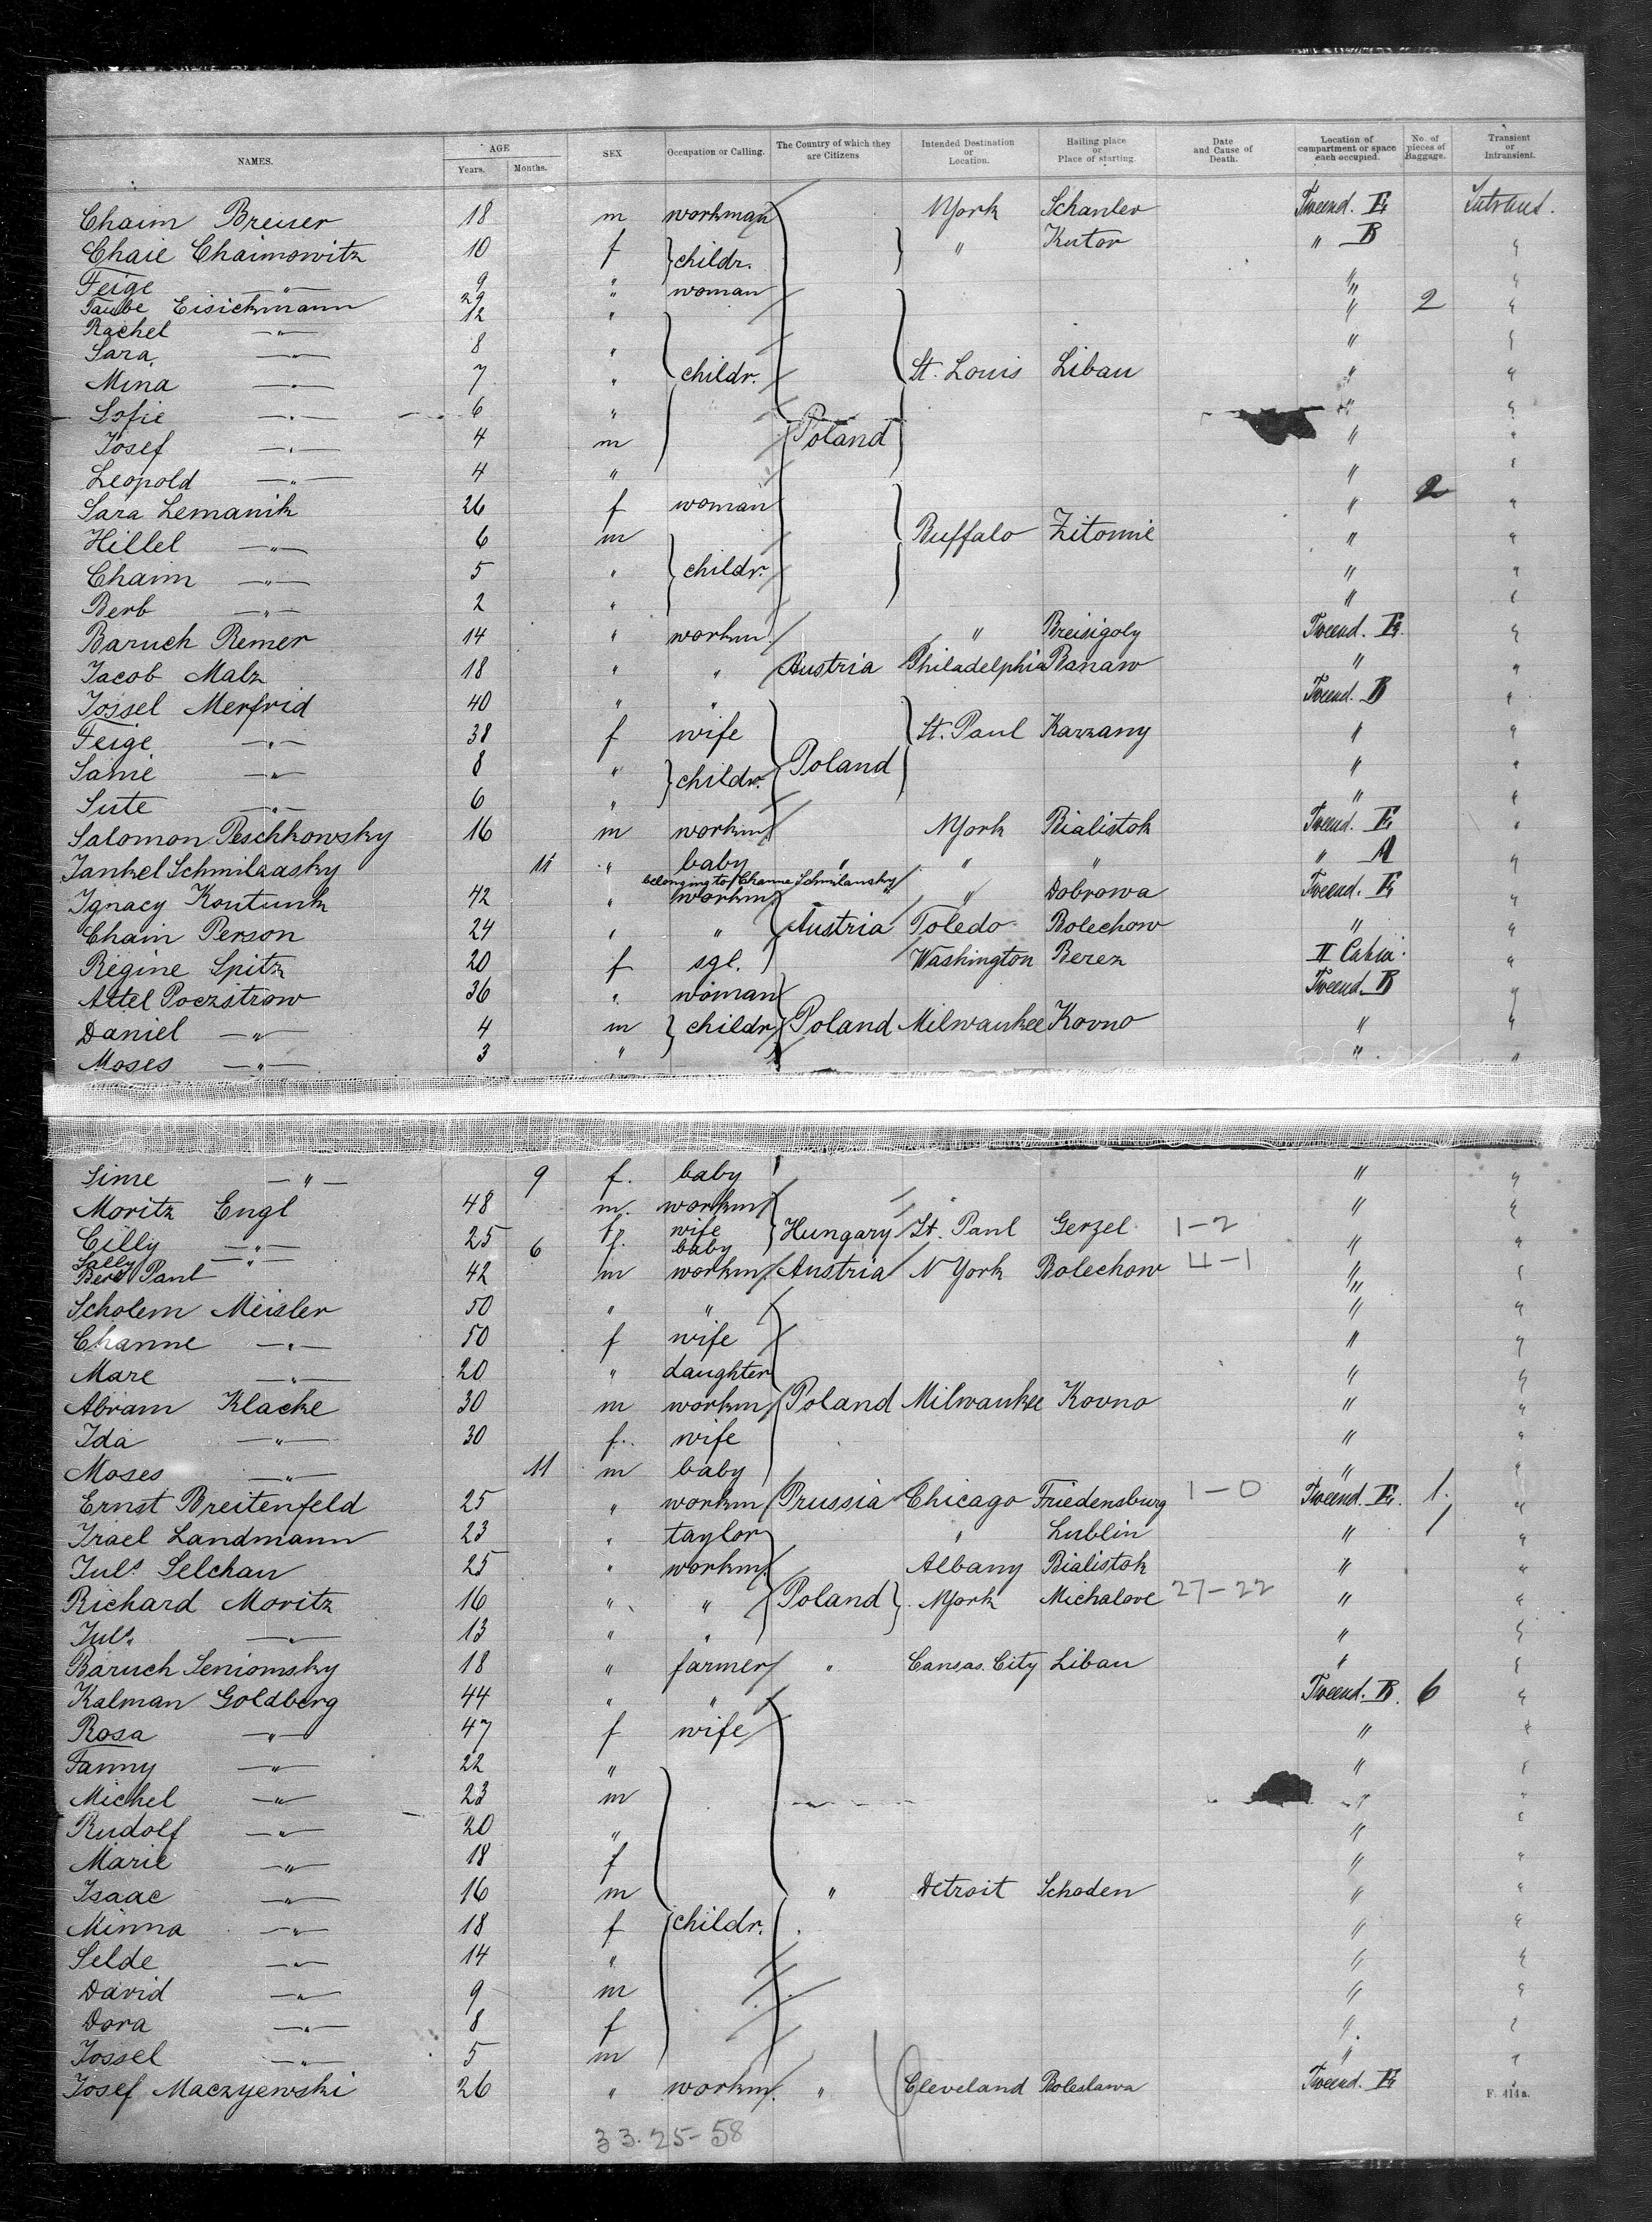 NAMES. AGE Years. Months. SEX Occupation or Calling. The Country of which they are Citizens Intended Destination or Location. Hailing place or Place of starting. Date and Cause of Death. Location of compartment or space each occupied. No. of pieces of Baggage. Transient or Intransient.
Chaim Breuer 18 m workman NYork Tweend. E
Chaie Chaimowitz 10 f childr. " Kutor " B "
Feige —"— 9 " " "
Taube Eisickmann 29 " woman " 2 "
Rachel —"— 12 " " "
Sara —"— 8 " " "
Mina —"— 7 " childr. St. Louis Libau " "
Sofie —"— 6 " " "
Josef —"— 4 m Poland " "
Leopold —"— 4 " " "
Sara Lemanik 26 f woman " 2 "
Hillel —"— 6 m Buffalo Zitomie " "
Chaim —"— 5 " childr. " "
Berb —"— 2 " " "
Baruch Remer 14 " workm. " Breisigoly Tweend. E. "
Jacob Malz 18 " " Austria Philadelphia Banaw " "
Jossel Merfrid 40 " " Tweend. B "
Feige —"— 38 f wife St. Paul Karzany " "
Sanie —"— 8 " childr. Poland " "
Sute —"— 6 " " "
Salomon Peschkowsky 16 m workm. NYork Bialistok Tweend. E "
Jankel Schmilaasky 11 " baby " " " " A "
belonging to Channe Schmilansky
Ignacy Kontunk 42 " workm. " Dobrowa Tweend. E "
Chain Person 24 " " Austria Toledo Bolechow " "
Regine Spitz 20 f sgl. Washington Berez II Cabin. "
Attel Poczstrow 36 " woman Tweend. B "
Daniel —"— 4 m childr. Poland Milwaukee Kovno " "
Moses —"— 3 " " "
Sime —"— 9 f. baby " "
Moritz Engl 48 m. workm. " "
Cilly —"— 25 f. wife Hungary St. Paul Gerzel 1-2 " "
Sally —"— 6 f. baby
Berl Paul 42 m workm. Austria N York Bolechow 4-1 " "
Scholem Meisler 50 " " " "
Channe —"— 50 f wife " "
Mare —"— 20 " daughter " "
Abram Klacke 30 m workm. Poland Milwaukee Kovno " "
Ida —"— 30 f. wife " "
Moses —"— 11 m baby " "
Ernst Breitenfeld 25 " workm. Prussia Chicago Friedensburg 1-0 Tweend. E. 1. "
Israel Landmann 23 " taylor " Lublin " 1 "
Juls. Selchan 25 " workm. Albany Bialistok " "
Richard Moritz 16 " " Poland NYork Michalove 27-22 " "
Juls. —"— 13 " " " "
Baruch Seniomsky 18 " farmer " Cansas. City Libau " "
Kalman Goldberg 44 " " Tweend. B. 6 "
Rosa —"— 47 f wife " "
Fanny —"— 22 " " "
Michel —"— 23 m " "
Rudolf —"— 20 " " "
Marie —"— 18 f " "
Isaac —"— 16 m " Detroit Schoden " "
Minna —"— 18 f childr. " "
Selde —"— 14 " " "
David —"— 9 m " "
Dora —"— 8 f " "
Jossel —"— 5 m " "
Josef Maczyewski 26 " workm. " Cleveland Boleslawa Tweend. E "
F. 414a.
33.25-58